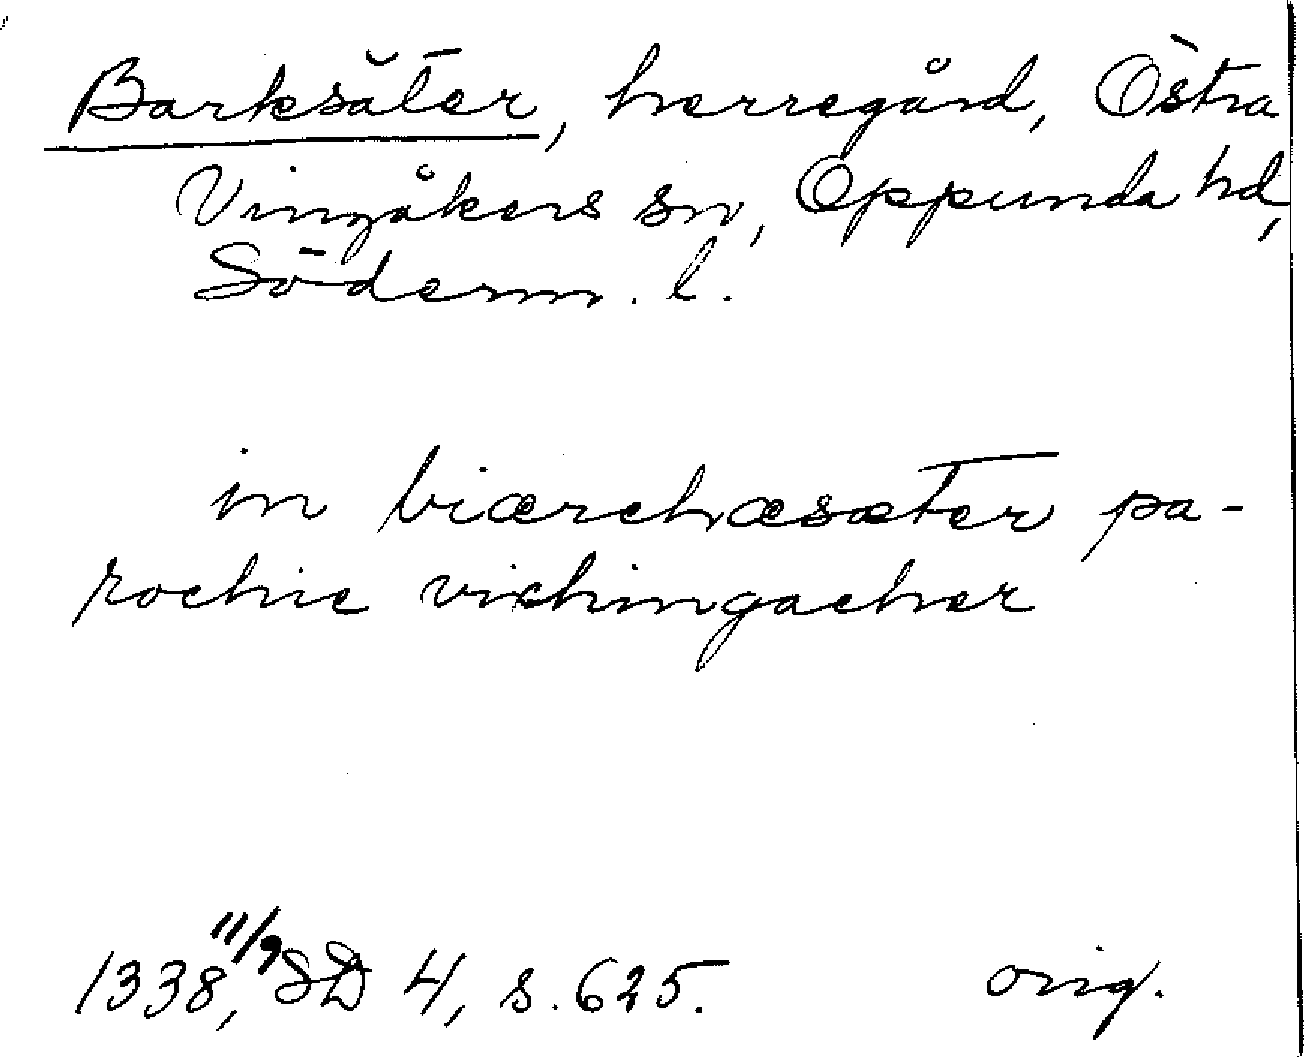 Barksäter, herregård, Östra
Vingåkers sn, Oppunda hd,
Söderm. l.
in biærchæsæter pa-
rochie vichingacher
1338, 11/9 SD 4, s. 625. orig.